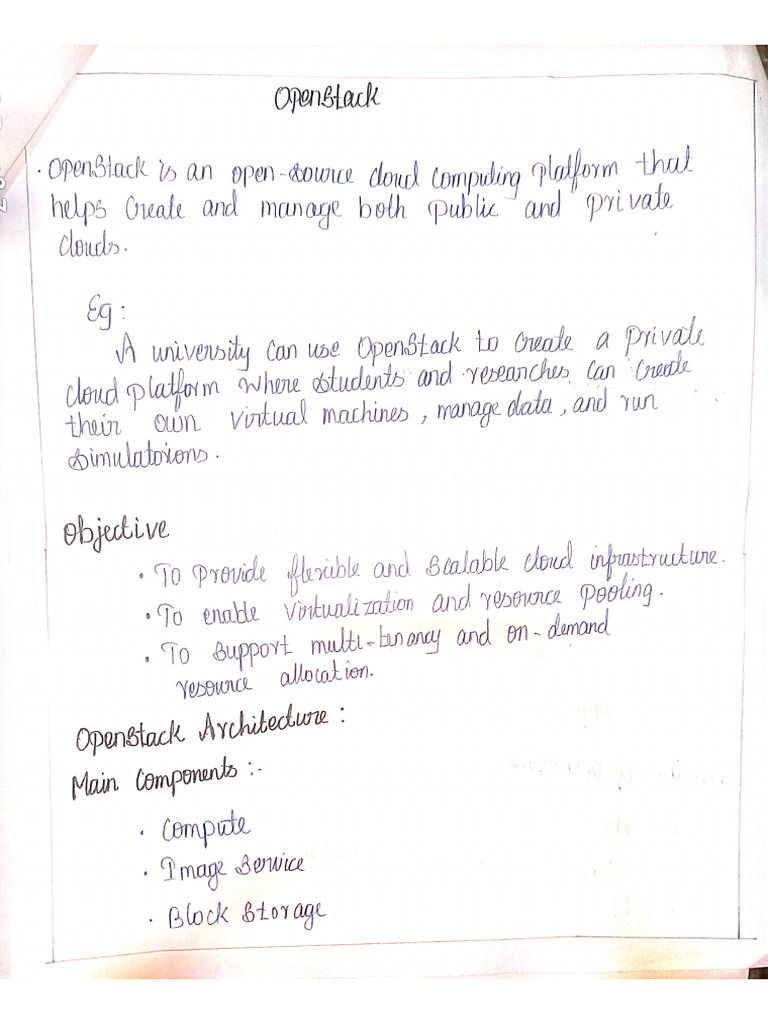 OpenStack
· OpenStack is an open-source cloud computing platform that
helps create and manage both public and private
clouds.
Eg :
A university can use OpenStack to create a private
cloud platform where students and researches can create
their own virtual machines, manage data, and run
simulatoions.
Objective
· To provide flexible and scalable cloud infrastructure.
· To enable virtualization and resource pooling.
· To support multi-tenancy and on-demand
resource allocation.
OpenStack Architecture :
Main Components :-
· Compute
· Image Service
· Block Storage